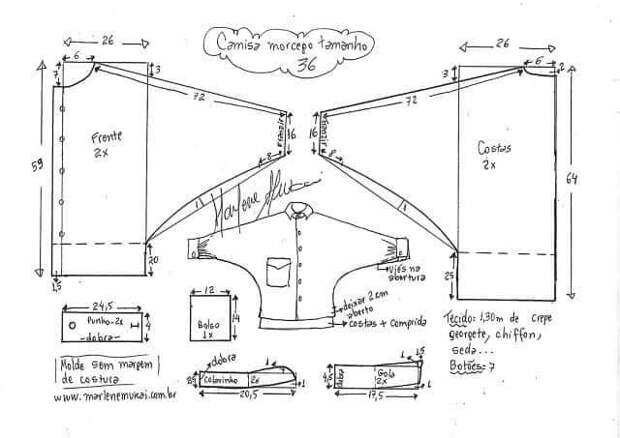 Camisa morcego tamanho
36
26
6
7
3
72
59
Frente
2x
Franzir
16
8
1
20
1,5
26
6
2
3
72
Franzir
16
8
1
Costas
2x
64
25
Marlene Mukai
viés na
abertura
deixar 2 cm
aberto
costas + comprida
24,5
Punho - 2x
- dobra -
4
12
Bolso
1x
14
Tecido: 1,30m de crepe
georgete, chiffon,
seda...
Botões = 7
Molde sem margem
de costura
www.marlenemukai.com.br
dobra
1
Colarinho
2x
1
20,5
1
1,5
4,5
dobra
Gola
2x
1
17,5